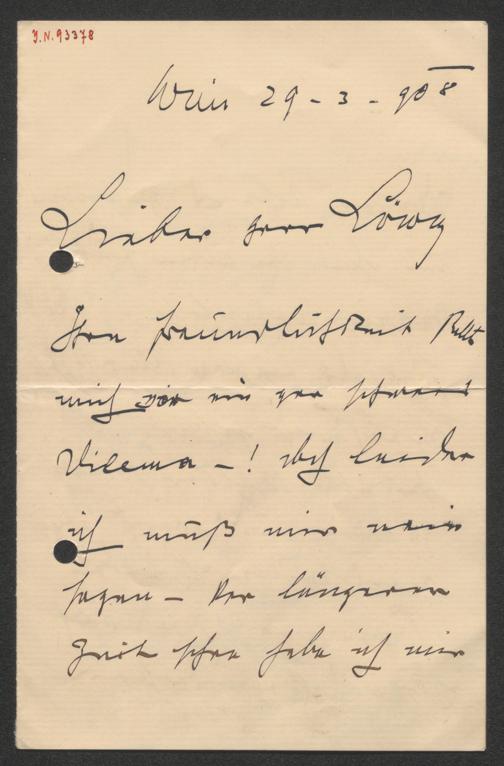 J.N. 93378
Wien 29 - 3 - 908
Lieber Herr Löwy
Ihre Freundlichkeit stellt
mich vor ein gar schweres
Dilema - ! aber leider
ich muß nur nein
sagen - Vor längerer
Zeit schon habe ich mir